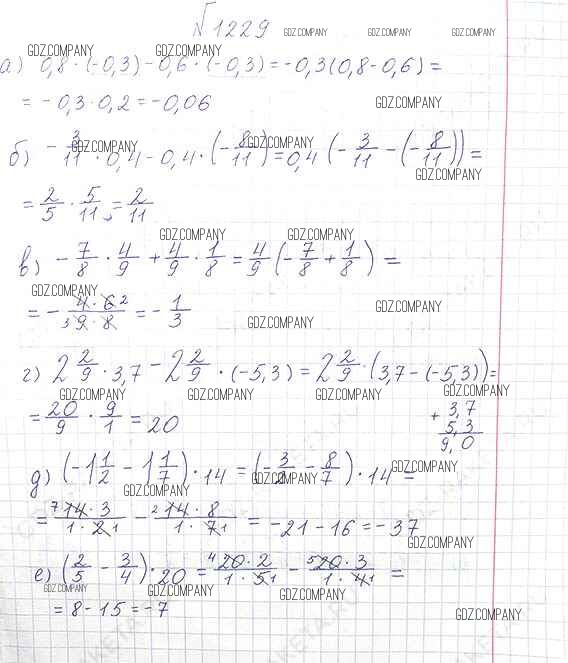 √1229
GDZ.COMPANY GDZ.COMPANY GDZ.COMPANY
GDZ.COMPANY GDZ.COMPANY
а) 0,8 · (-0,3) - 0,6 · (-0,3) = -0,3(0,8 - 0,6) =
= -0,3 · 0,2 = -0,06
GDZ.COMPANY
GDZ.COMPANY GDZ.COMPANY
б) - 3/11 · 0,4 - 0,4 · (- 8/11) = 0,4 (- 3/11 - (- 8/11)) =
GDZ.COMPANY
= 2/5 · 5/11 = 2/11
GDZ.COMPANY GDZ.COMPANY
в) - 7/8 · 4/9 + 4/9 · 1/8 = 4/9 (- 7/8 + 1/8) =
GDZ.COMPANY GDZ.COMPANY
= - 4 · 6 2 / 3 9 · 8 = - 1/3
GDZ.COMPANY
г) 2 2/9 · 3,7 - 2 2/9 · (-5,3) = 2 2/9 · (3,7 - (-5,3)) =
GDZ.COMPANY GDZ.COMPANY GDZ.COMPANY GDZ.COMPANY
= 20/9 · 9/1 = 20
+ 3,7
5,3
9,0
д) (-1 1/2 - 1 1/7) · 14 = (- 3/2 - 8/7) · 14 =
GDZ.COMPANY GDZ.COMPANY GDZ.COMPANY
= 7 14 · 3 / 1 · 2 1 - 2 14 · 8 / 1 · 7 1 = -21 - 16 = -37
GDZ.COMPANY
е) (2/5 - 3/4) · 20 = 4 20 · 2 / 1 · 5 1 - 5 20 · 3 / 1 · 4 1 =
GDZ.COMPANY GDZ.COMPANY GDZ.COMPANY
= 8 - 15 = -7
GDZ.COMPANY